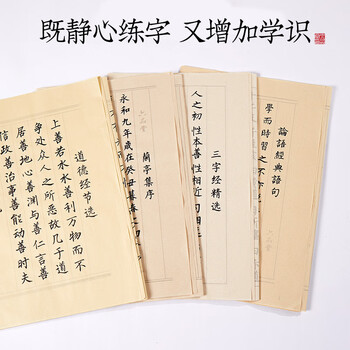 既静心练字 又增加学识
道德经节选
上善若水水善利万物而不
争处众人之所恶故几于道
居善地心善渊与善仁言善
信政善治事善能动善时夫
蘭亭集序
永和九年歲在癸丑暮春
六品堂
三字经精选
人之初性本善性相近习相
論語經典語句
學而時習之不亦
六品堂